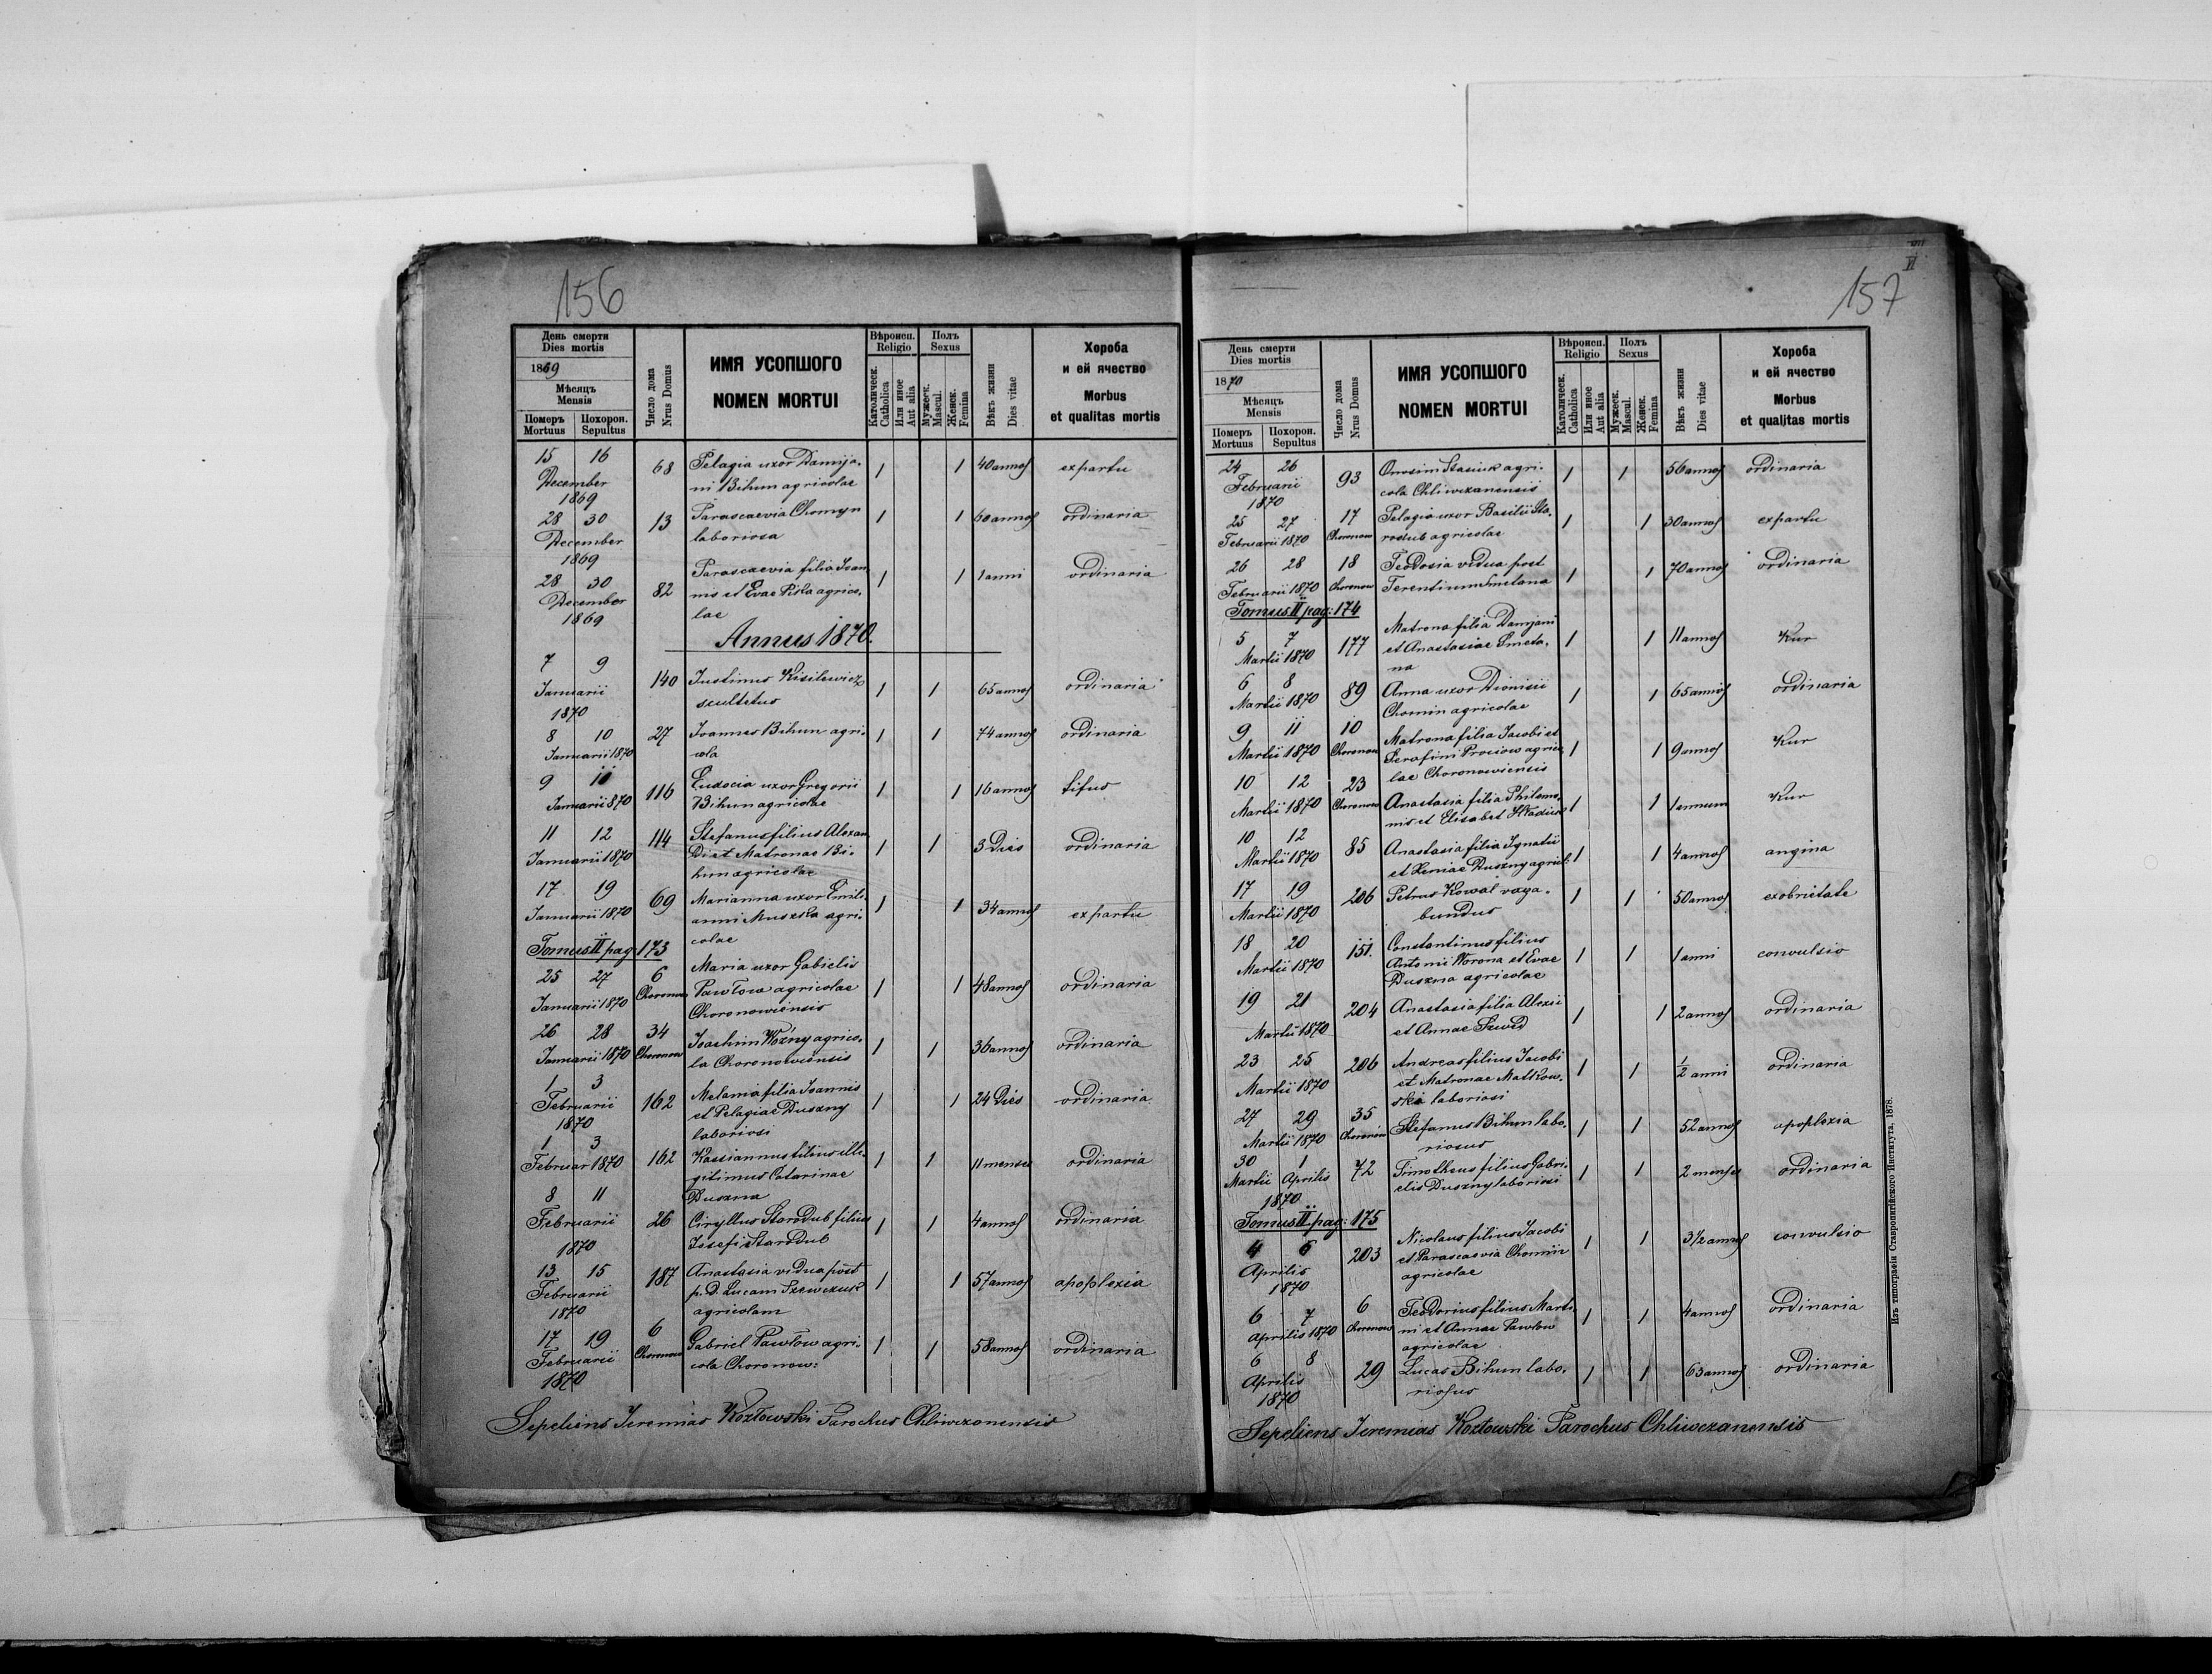 156
День смерти
Dies mortis
1869
Мѣсяцъ
Mensis
Померъ Похорон.
Mortuus Sepultus
Число дома
Nrus Domus
ИМЯ УСОПШОГО
NOMEN MORTUI
Вѣроисп.
Religio
Католическ.
Catholica
Или иное
Aut alia
Полъ
Sexus
Мужеск.
Mascul.
Женск.
Femina
Вѣкъ жизни
Dies vitae
Хороба
и ей ячество
Morbus
et qualitas mortis
15 16 68 Pelagia uxor Damija- 1 1 40 annos expartu
December ni Bihun agricolae
1869
28 30 13 Parascaevia Chomyn 1 1 60 annos ordinaria
December laboriosa
1869
28 30 82 Parascaevia filia Ioan 1 1 1 anni ordinaria
December nis et Evae Piła agrico-
1869 lae
Annus 1870.
7 9 140 Iustinus Kisilewicz 1 1 65 annos ordinaria
Januarii scultetus
1870
8 10 27 Ioannes Bihun agri- 1 1 74 annos ordinaria
Januarii 1870 cola
9 11 116 Eudocia uxor Gregorii 1 1 16 annos tifus
Januarii 870 Bihun agricolae
11 12 114 Stefanus filius Alexan 1 1 3 Dies ordinaria
Januarii 1870 Di et Matronae Bi-
hun agricolae
17 19 69 Marianna uxor Emili- 1 1 34 annos expartu
Januarii 1870 anni Muszka agri-
colae
Tomus II pag: 173
25 27 6 Maria uxor Gabielis 1 1 48 annos ordinaria
Januarii 1870 Choronow Pawłow agricolae
Choronowiensis
26 28 34 Ioachim Woźny agrico- 1 1 36 annos ordinaria
Januarii 1870 Choronow la Choronowiensis
1 3 162 Melania filia Ioannis 1 1 24 Dies ordinaria
Februarii et Pelagiae Duszny
1870 laboriosi
1 3 162 Kassiannus filius illi- 1 1 11 menses ordinaria
Februar 1870 gitimus Catarinae
Duszna
8 11 26 Ciryllus StaroDub filius 1 1 4 annos ordinaria
Februarii Iosefi StaroDub
1870
13 15 187 Anastasia viDua post 1 1 57 annos apoplexia
Februarii p. D. Lucam Szewczuk
1870 agricolam
17 19 6 Gabriel Pawłow agri- 1 1 58 annos ordinaria
Februarii Choronow cola Choronow:
1870
Sepeliens Jeremias Kozłowski Parochus Chliwczanensis
VI
157
День смерти
Dies mortis
1870
Мѣсяцъ
Mensis
Померъ Похорон.
Mortuus Sepultus
Число дома
Nrus Domus
ИМЯ УСОПШОГО
NOMEN MORTUI
Вѣроисп.
Religio
Католическ.
Catholica
Или иное
Aut alia
Полъ
Sexus
Мужеск.
Mascul.
Женск.
Femina
Вѣкъ жизни
Dies vitae
Хороба
и ей ячество
Morbus
et qualitas mortis
24 26 93 Onosim Stasiuk agri- 1 1 56 annos ordinaria
Februarii cola Chliwczanensis
1870
25 27 17 Pelagia uxor Basilii Sta- 1 1 30 annos expartu
Februarii 1870 Choronow rodub agricolae
26 28 18 Teodosia vidua post 1 1 70 annos ordinaria
Februarii 1870 Choronow Terentium Smetana
Tomus II pag: 174
5 7 177 Matrona filia Damjani 1 1 11 annos Kur
Martii 1870 et Anastasiae Smeta-
na
6 8 89 Anna uxor Dionisii 1 1 65 annos ordinaria
Martii 1870 Chomin agricolae
9 11 10 Matrona filia Jacobi et 1 1 9 annos Kur
Martii 1870 Choronow Serafini Prociow agrico
lae Choronowiensis
10 12 23 Anastasia filia Philemo- 1 1 1 annum Kur
Martii 1870 Choronow nis et Elisabet Hładiuk
10 12 85 Anastasia filia Ignatii 1 1 4 annos angina
Martii 1870 et Xeniae Duszny agricol:
17 19 206 Petrus Kowal vaga- 1 1 50 annos exobrietate
Martii 1870 bundus
18 20 151. Constantinus filius 1 1 1 anni convulsio
Martii 1870 Antonii Worona et Evae
Duszna agricolae
19 21 204 Anastasia filia Alexii 1 1 2 annos ordinaria
Martii 1870 et Annae Szwed
23 25 206 Andreas filius Jacobi 1 1 1/2 anni ordinaria
Martii 1870 et Matronae Matkow-
ska laboriosi
27 29 35 Stefanus Bihun labo- 1 1 52 annos apoplexia
Martii 1870 Choronow riosus
30 1 72 Timotheus filius Gabri- 1 1 2 menses ordinaria
Martii Aprilis elis Duszny laboriosi
1870
Tomus II pag: 175
4 6 203 Nicolaus filius Jacobi 1 1 3 1/2 annos convulsio
Aprilis et Parascaevia Chomin
1870 agricolae
6 7 6 Teodorius filius Marti- 1 1 4 annos ordinaria
Aprilis 1870 Choronow ni et Annae Pawlow
agricolae
6 8 29 Lucas Bihun labo- 1 1 63 annos ordinaria
Aprilis riosus
1870
Sepeliens Jeremias Kozłowski Parochus Chliwczanensis
Изъ типографіи Ставропигійского Института, 1878.